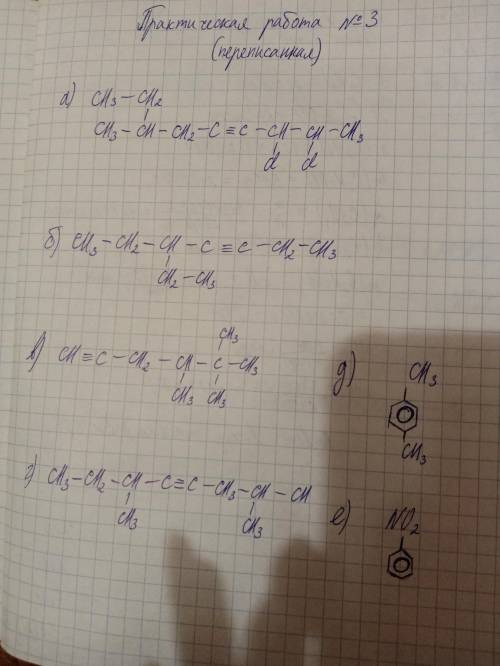 Практическая работа №3
(переписанная)
а) CH3 – CH2
CH3 – CH – CH2 – C ≡ C – CH – CH – CH3
cl cl
б) CH3 – CH2 – CH – C ≡ C – CH2 – CH3
CH2 – CH3
CH3
в) CH ≡ C – CH2 – CH – C – CH3
CH3 CH3
д) CH3
CH3
г) CH3 – CH2 – CH – C ≡ C – CH3 – CH – CH
CH3 CH3
е) NO2